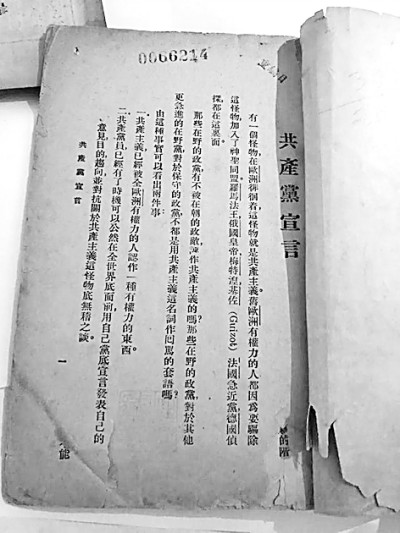 0066214
共產黨宣言
有一個怪物在歐洲徘徊着這怪物就是共產主義舊歐洲有權力的人都因爲要驅除
這怪物加入了神聖同盟羅馬法王俄國皇帝梅特涅基佐(Guizot)法國急近黨德國偵
探都在這裏面。
那些在野的政黨有不被在朝的政敵誣作共產主義的嗎?那些在野的政黨對於其他
更急進的在野黨對於保守的政黨不都是用共產主義這名詞作罵的套語嗎?
由這種事實可以看出兩件事:
一、共產主義已經被全歐洲有權力的人認作一種有權力的東西。
二、共產黨員已經有了時機可以公然在全世界底面前用自己黨底宣言發表自己的
意見目的趨向並對抗關於共產主義這怪物底無稽之談。
共產黨宣言
一
能